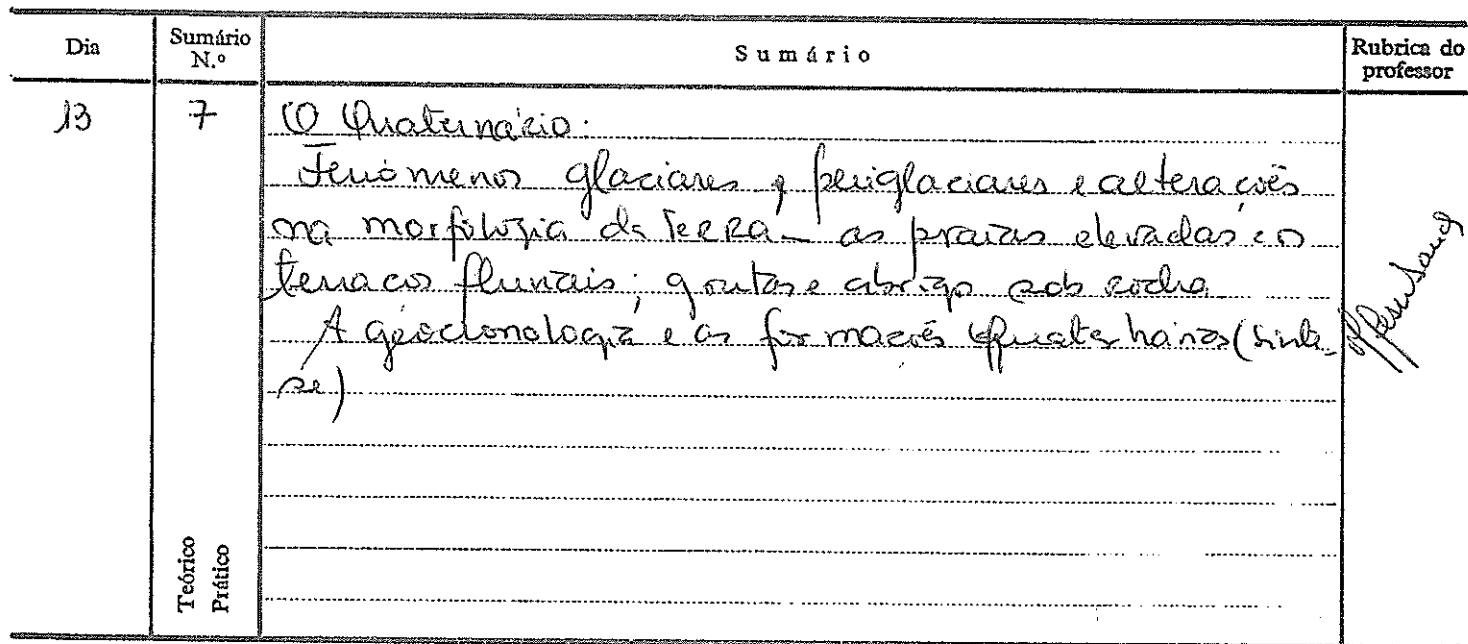 Dia Sumário N.º Sumário Rubrica do professor
13 7 O Quaternário:
Fenómenos glaciares e periglaciares e alterações
na morfologia da Terra - as praias elevadas e os
terraços fluviais; grutas e abrigo sob rocha
A geocronologia e as formações Quaternárias (sínte-
se)
Teórico
Prático